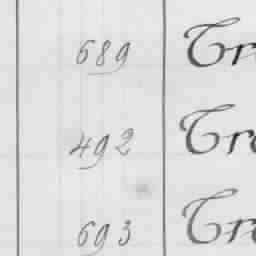 689 Tr
492 Tra
693 Tra